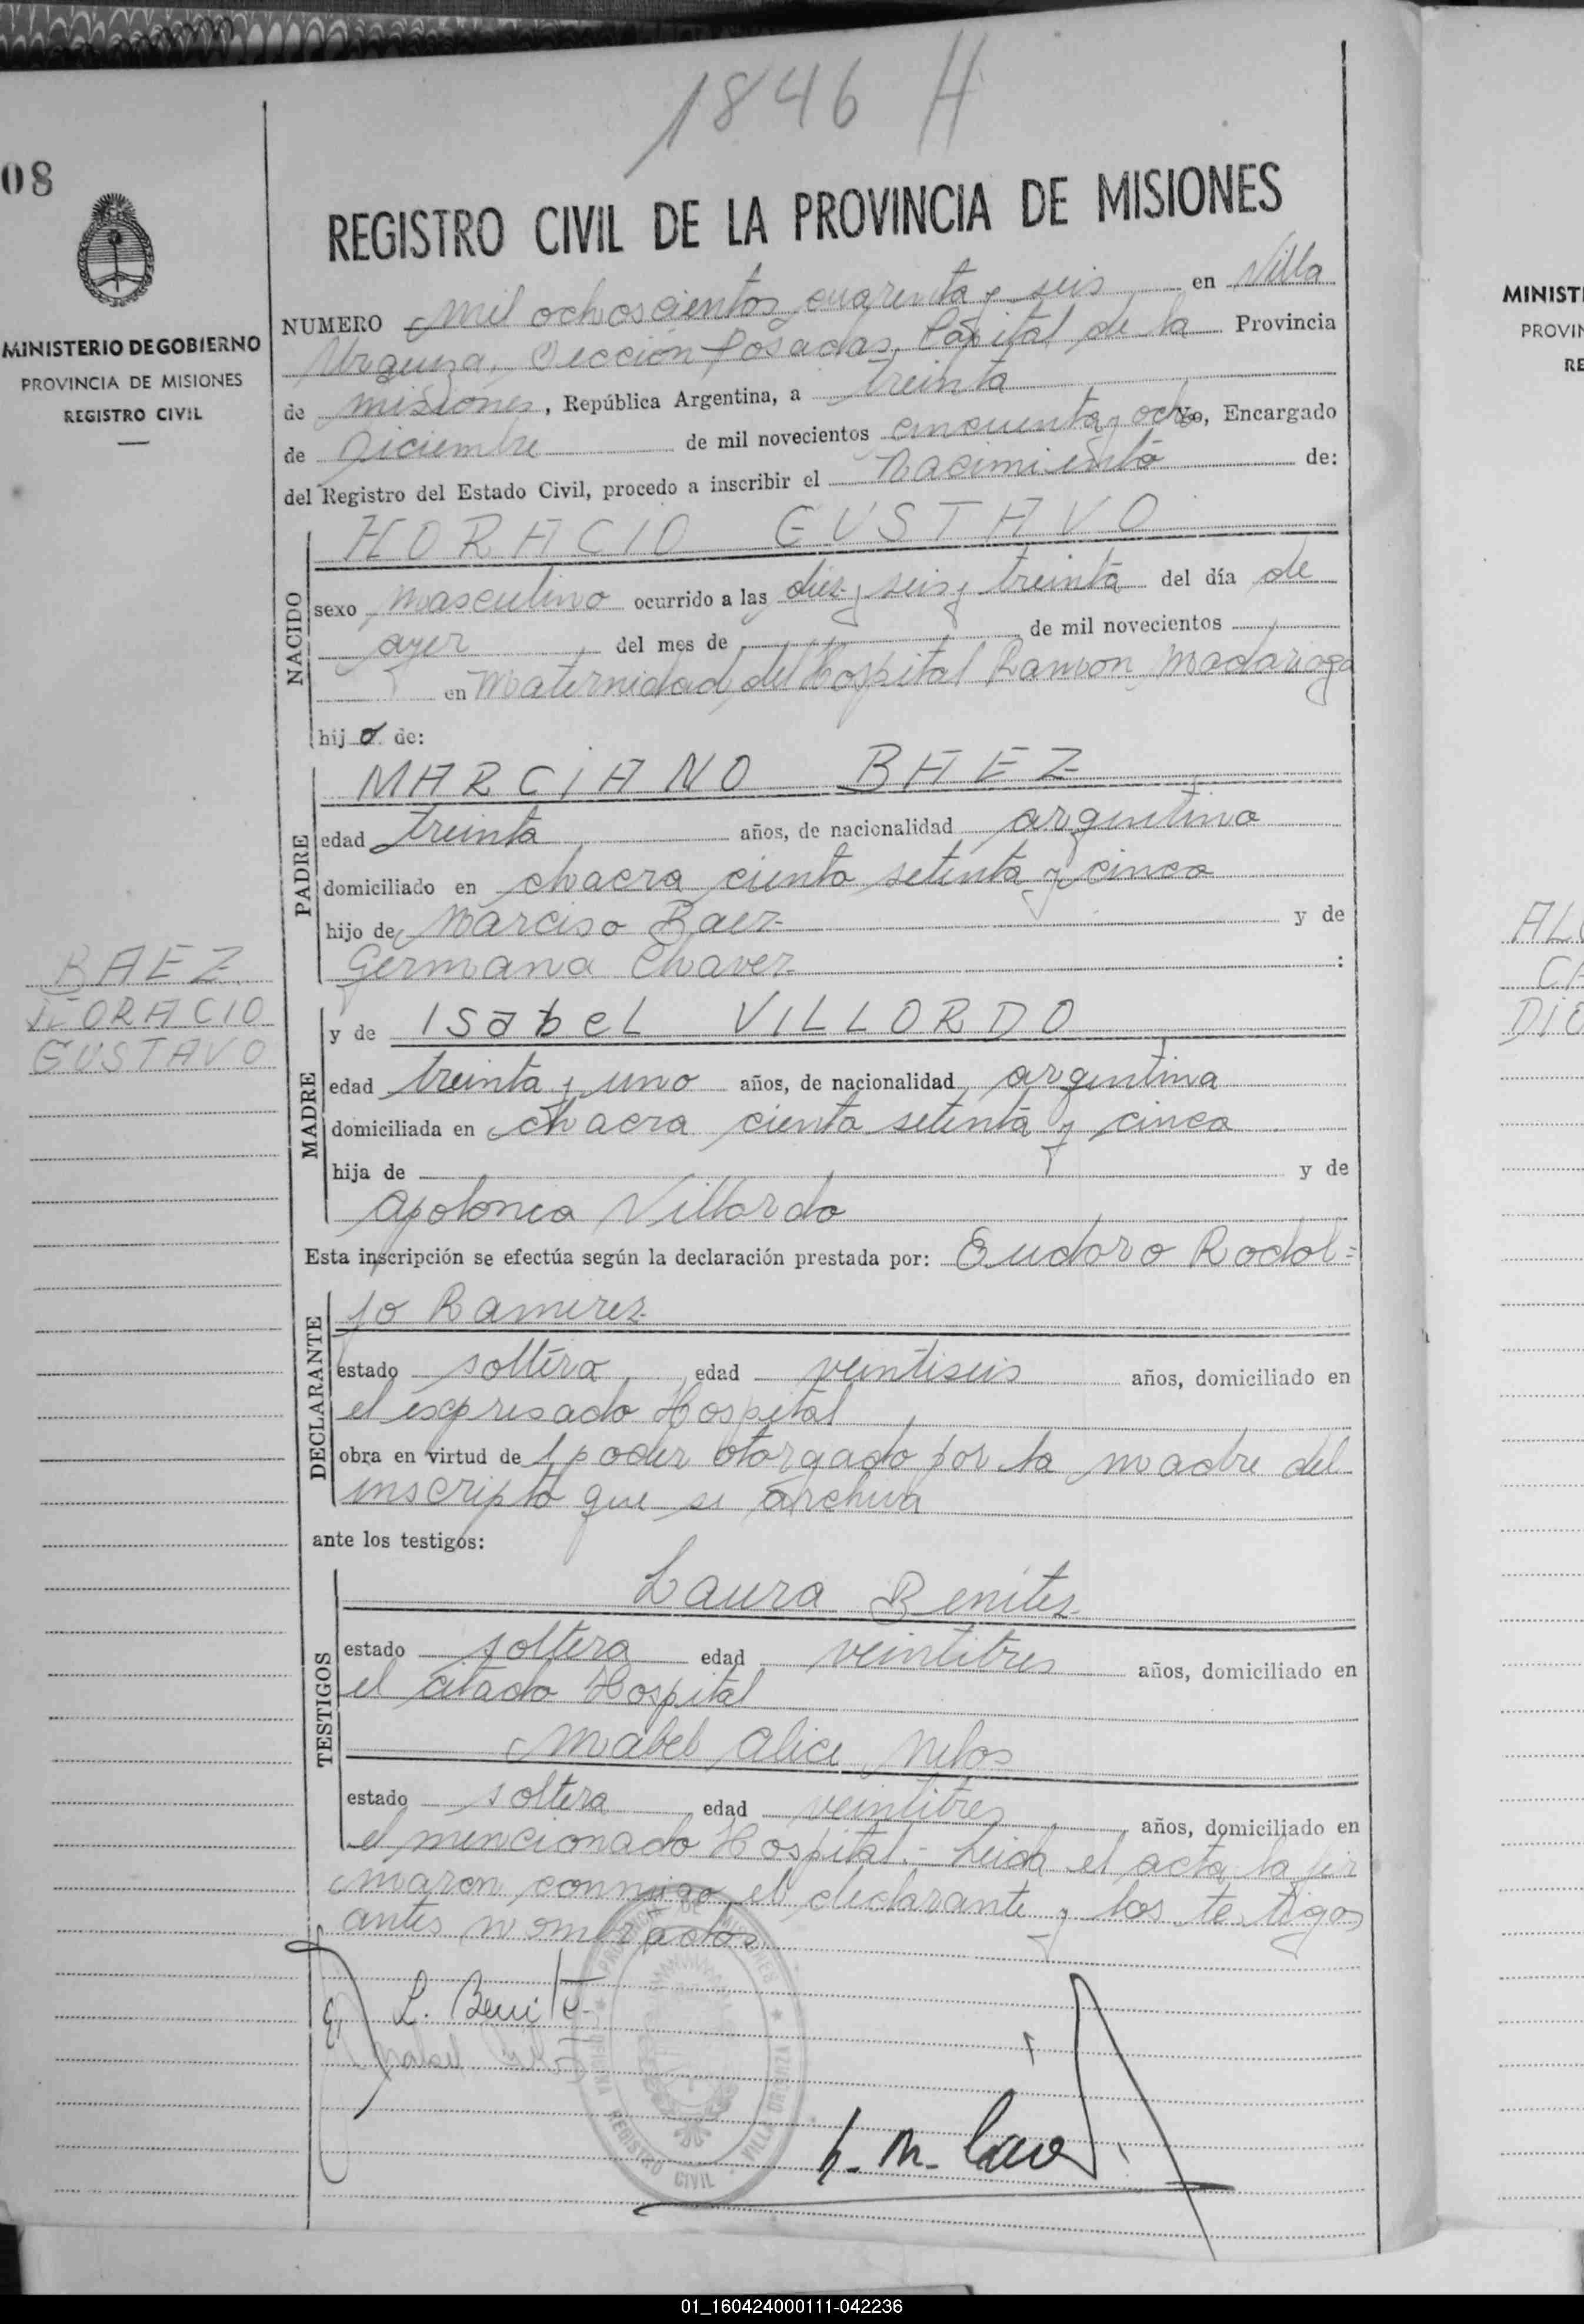 1846 H
08
REGISTRO CIVIL DE LA PROVINCIA DE MISIONES
MINISTERIO DE GOBIERNO
PROVINCIA DE MISIONES
REGISTRO CIVIL
NUMERO mil ochoscientos cuarenta y seis en Villa
Urquiza, Sección Posadas, Capital de la Provincia
de misiones, República Argentina, a treinta
de Diciembre de mil novecientos cincuenta y ocho Yo, Encargado
del Registro del Estado Civil, procedo a inscribir el nacimiento de:
HORACIO GUSTAVO
NACIDO
sexo masculino ocurrido a las diez y seis y treinta del día de
ayer del mes de de mil novecientos
en Maternidad del Hospital Ramon Madariaga
hijo de:
MARCIANO BAEZ
PADRE
edad treinta años, de nacionalidad argentino
domiciliado en chacra ciento setenta y cinco
hijo de Narciso Baez y de
Germana Chavez :
BAEZ
HORACIO
GUSTAVO
y de Isabel VILLORDO
MADRE
edad treinta y uno años, de nacionalidad argentina
domiciliada en chacra ciento setenta y cinco
hija de y de
Apolonia Villordo
Esta inscripción se efectúa según la declaración prestada por: Eudoro Rodol=
fo Ramirez
DECLARANTE
estado soltero edad veintiseis años, domiciliado en
el expresado Hospital
obra en virtud de poder otorgado por la madre del
inscripto que se archiva
ante los testigos:
Laura Benitez
TESTIGOS
estado soltera edad veintitres años, domiciliado en
el citado Hospital
Mabel Alice
estado soltera edad veintitres años, domiciliado en
el mencionado Hospital.- Leida el acta, la fir
maron conmigo el declarante y los testigos
antes nombrados
L. Benitez
PROVINCIA DE MISIONES
OFICINA REGISTRO CIVIL VILLA URQUIZA
MINIST
PROVIN
RE
AL
C
DIO
01_160424000111-042236